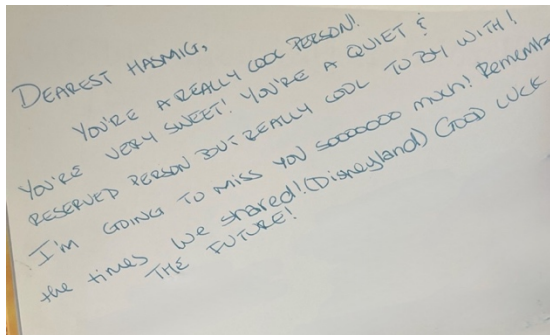 DEAREST HASMIG,
YOU'RE A REALLY COOL PERSON!
YOU'RE VERY SWEET! YOU'RE A QUIET &
RESERVED PERSON BUT REALLY COOL TO BY WITH!
I'M GOING TO MISS YOU SOOOOOOO much! Remember
the times we shared! (Disneyland) GOOD LUCK
THE FUTURE!